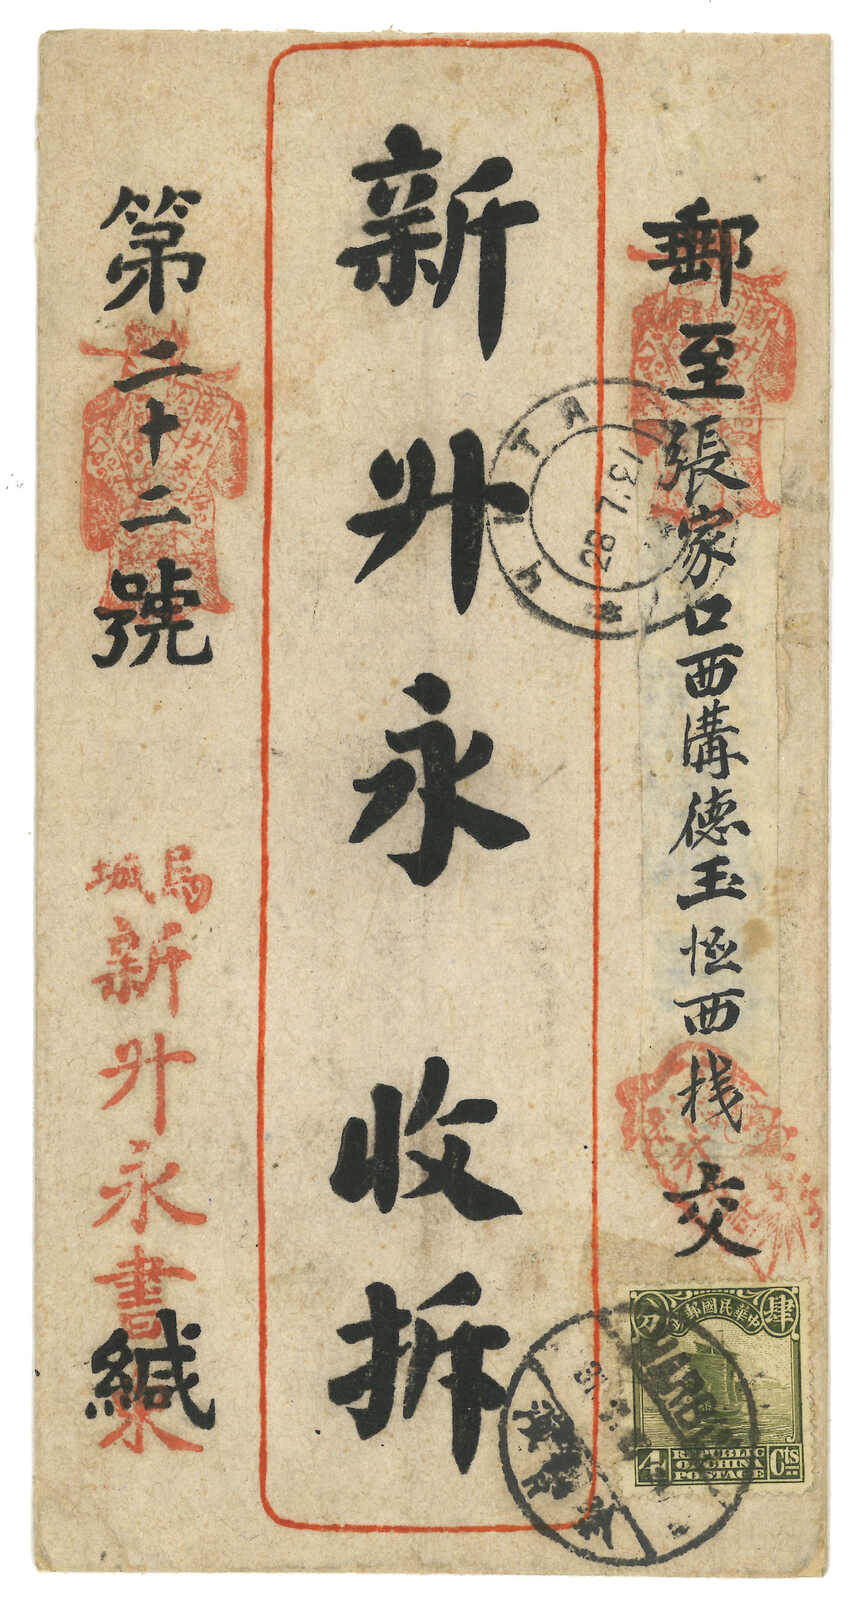 郵至張家口西溝德玉恆西栈交
新升永收拆
第二十二號
烏城
新升永書柬
緘
ЧИТА
28.7.21
中華民國郵政
肆
分
4 Cts
REPUBLIC
OF CHINA
POSTAGE